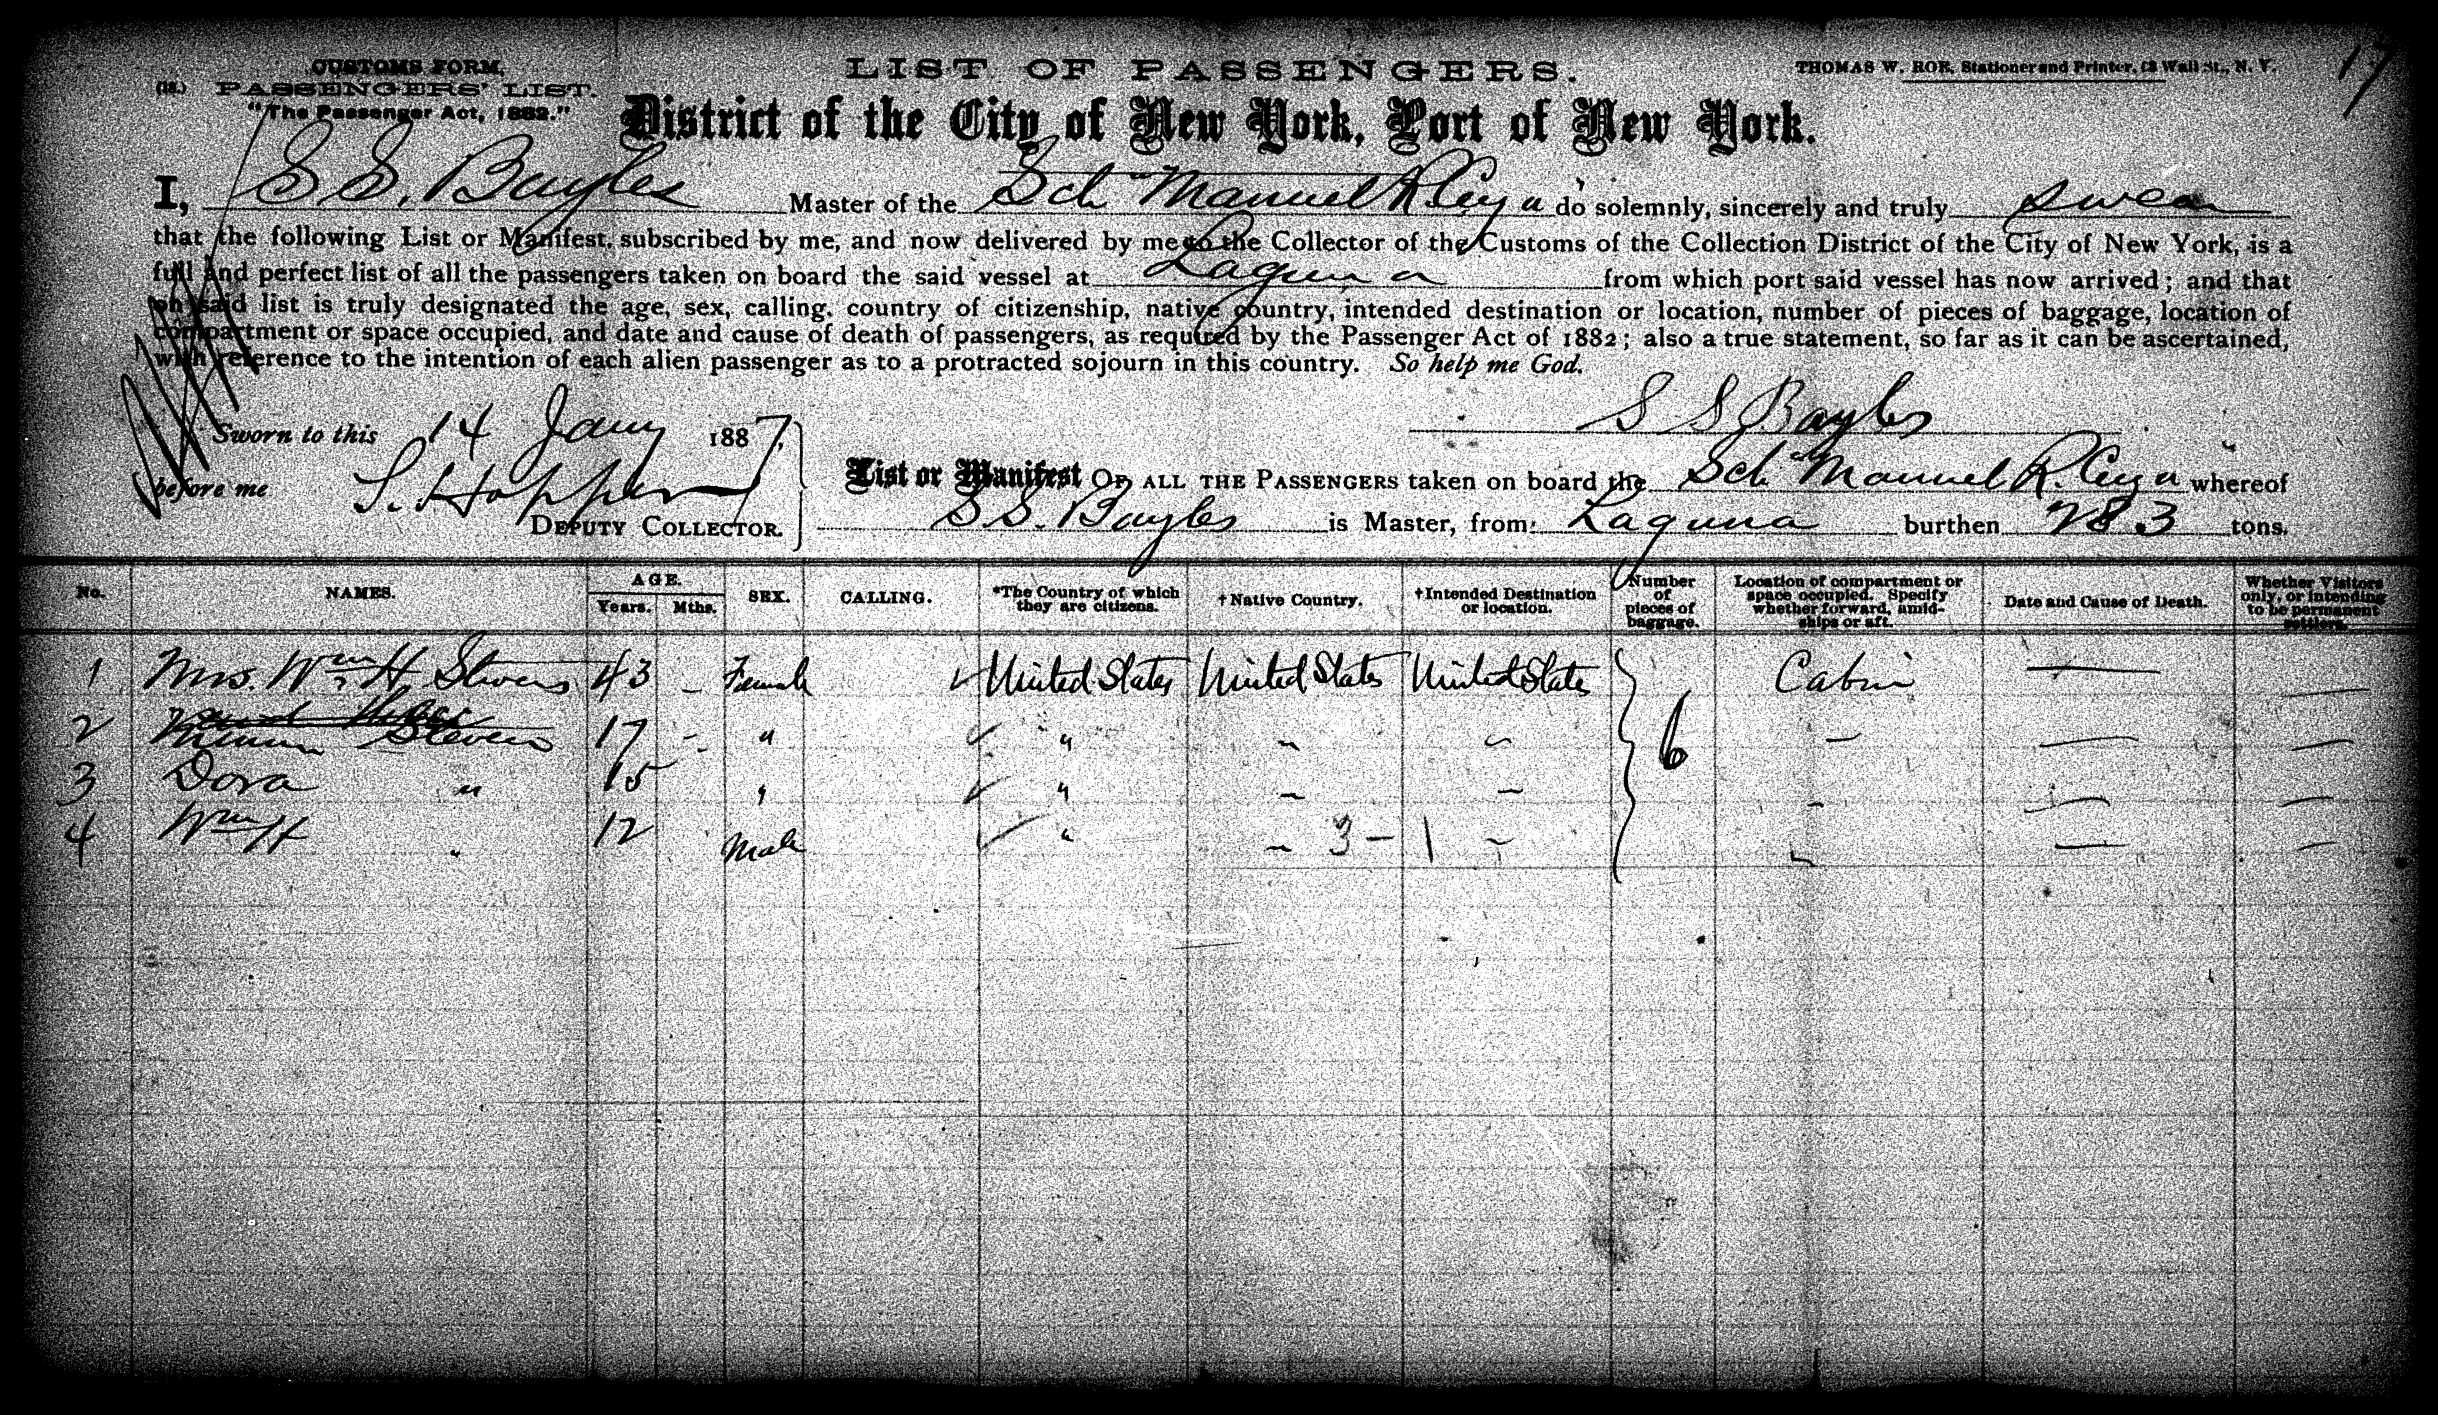 CUSTOMS FORM,
LIST OF PASSENGERS.
THOMAS W. ROE, Stationer and Printer, 12 Wall St., N. Y.
17
(18.) PASSENGERS' LIST.
"The Passenger Act, 1882."
District of the City of New York, Port of New York.
I, S S. Bayles Master of the Sch Manuel R. Cuza do solemnly, sincerely and truly swear
that the following List or Manifest, subscribed by me, and now delivered by me to the Collector of the Customs of the Collection District of the City of New York, is a
full and perfect list of all the passengers taken on board the said vessel at Laguna from which port said vessel has now arrived; and that
on said list is truly designated the age, sex, calling, country of citizenship, native country, intended destination or location, number of pieces of baggage, location of
compartment or space occupied, and date and cause of death of passengers, as required by the Passenger Act of 1882; also a true statement, so far as it can be ascertained,
with reference to the intention of each alien passenger as to a protracted sojourn in this country. So help me God.
S S Bayles
Sworn to this 14 Jany 1887,
before me S. Hopper
DEPUTY COLLECTOR.
List or Manifest OF ALL THE PASSENGERS taken on board the Sch Manuel R. Cuza whereof
S S. Bayles is Master, from Laguna burthen 283 tons.
No. NAMES. AGE. Years. Mths. SEX. CALLING. *The Country of which they are citizens. †Native Country. †Intended Destination or location. Number of pieces of baggage. Location of compartment or space occupied. Specify whether forward, amidships or aft. Date and Cause of Death. Whether Visitors only, or intending to be permanent settlers.
1 Mrs. Wm H Stevens 43 - Female United States United States United States Cabin —
2 Stevens 17 - " " " " 6 — —
3 Dora " 15 " " " " — —
4 Wm H " 12 Male " " 3 - 1 " — —